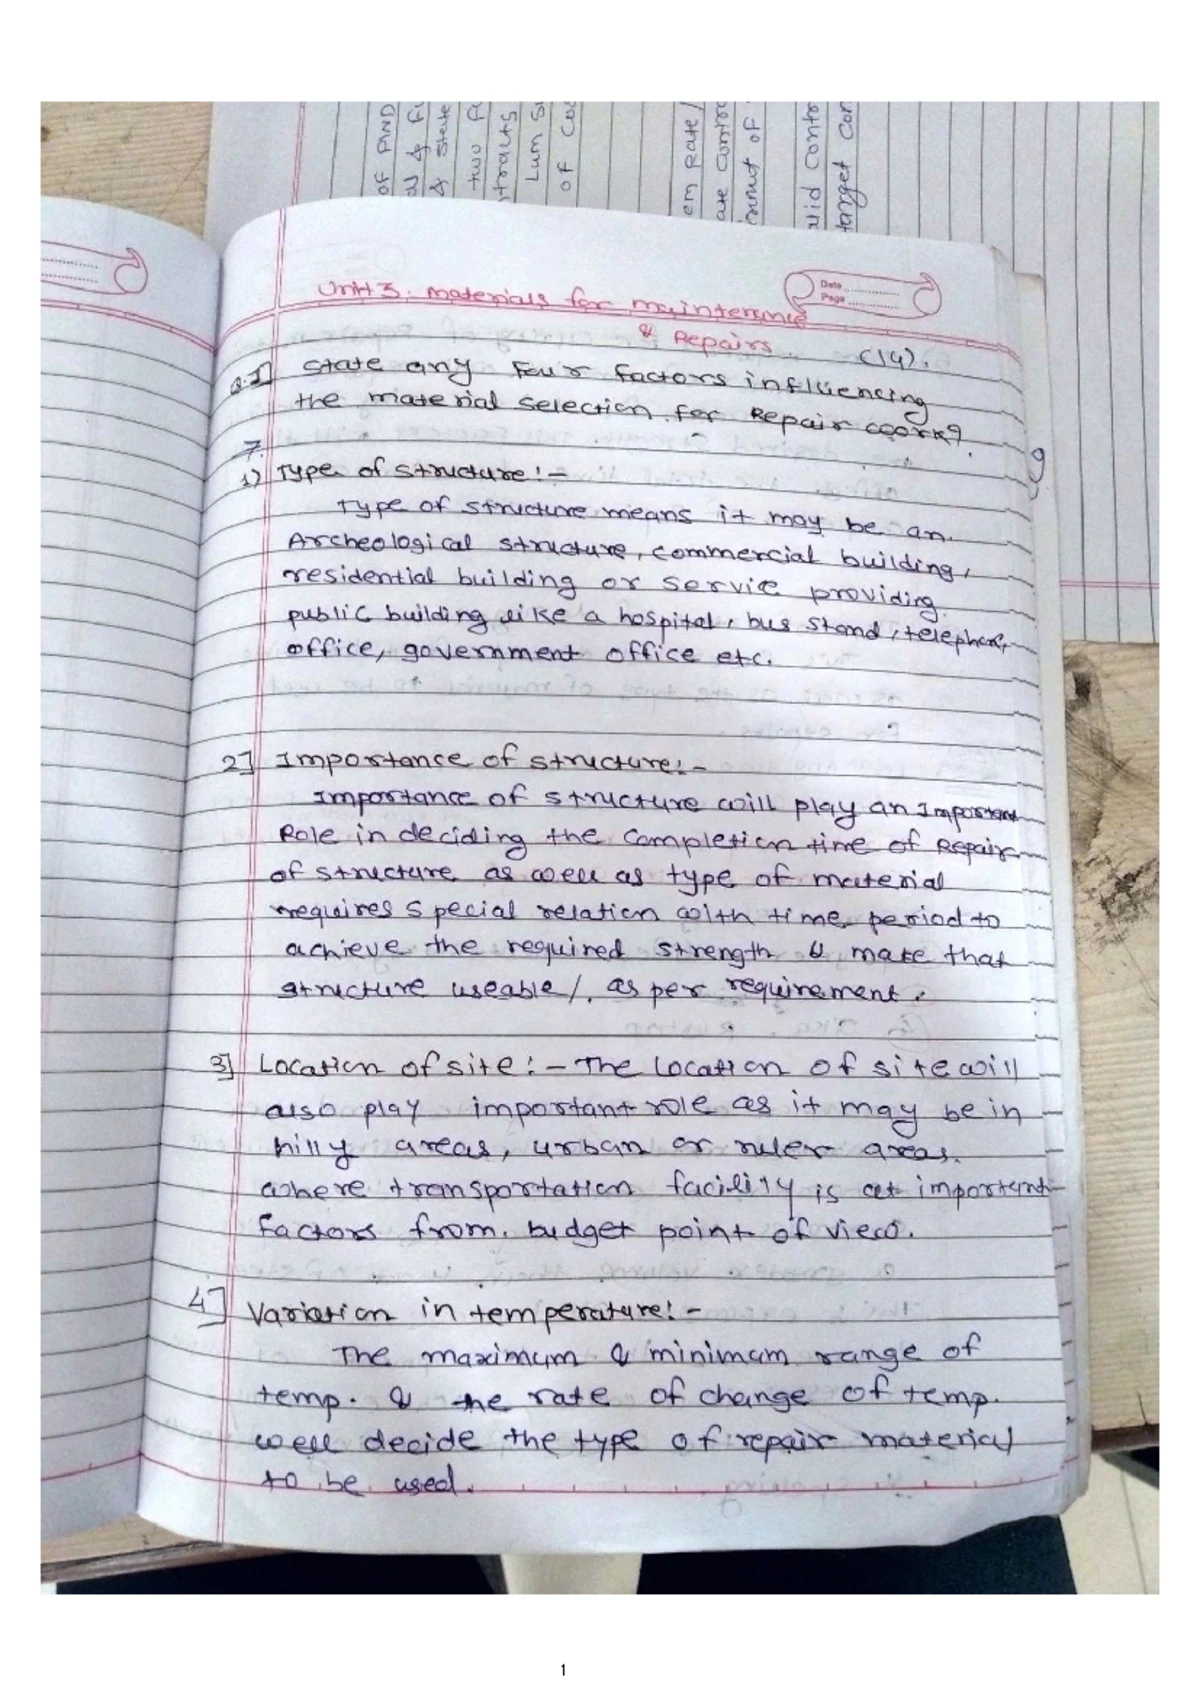 of PWD
& State
two
tracts
Lum S
of
em Rate /
ount of
target Con
Date
Page
Unit 3. Materials for mainterance
& Repairs. (14).
Q.1] State any Four factors influencing
the material selection for Repair work?
7.
1) Type of structure:-
Type of structure means it may be an
Archeological structure, commercial building,
residential building or service providing
public building like a hospital, bus stand, telephone,
office, government office etc.
2] Importance of structure:-
Importance of structure will play an Important
Role in deciding the completion time of Repair
of structure as well as type of material
requires special relation with time period to
achieve the required strength & make that
structure useable/. as per requirement.
3] Location of site:- The location of site will
also play important role as it may be in
hilly areas, urban or ruler areas.
where transportation facility is at important
factors from. budget point of view.
4] Variation in temperature:-
The maximum & minimum range of
temp. & the rate of change of temp.
well decide the type of repair material
to be used.
1